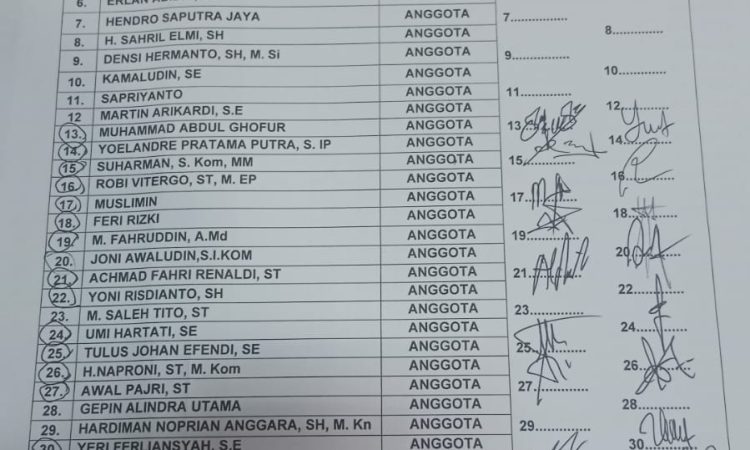 6. ANGGOTA
7. HENDRO SAPUTRA JAYA ANGGOTA 7...........
8. H. SAHRIL ELMI, SH ANGGOTA 8...........
9. DENSI HERMANTO, SH, M. Si ANGGOTA 9...........
10. KAMALUDIN, SE ANGGOTA 10...........
11. SAPRIYANTO ANGGOTA 11...........
12 MARTIN ARIKARDI, S.E ANGGOTA 12...........
13. MUHAMMAD ABDUL GHOFUR ANGGOTA 13...........
14. YOELANDRE PRATAMA PUTRA, S. IP ANGGOTA 14...........
15. SUHARMAN, S. Kom, MM ANGGOTA 15...........
16. ROBI VITERGO, ST, M. EP ANGGOTA 16...........
17. MUSLIMIN ANGGOTA 17...........
18. FERI RIZKI ANGGOTA 18...........
19. M. FAHRUDDIN, A.Md ANGGOTA 19...........
20. JONI AWALUDIN,S.I.KOM ANGGOTA 20...........
21. ACHMAD FAHRI RENALDI, ST ANGGOTA 21...........
22. YONI RISDIANTO, SH ANGGOTA 22...........
23. M. SALEH TITO, ST ANGGOTA 23...........
24. UMI HARTATI, SE ANGGOTA 24...........
25. TULUS JOHAN EFENDI, SE ANGGOTA 25...........
26. H.NAPRONI, ST, M. Kom ANGGOTA 26...........
27. AWAL PAJRI, ST ANGGOTA 27...........
28. GEPIN ALINDRA UTAMA ANGGOTA 28...........
29. HARDIMAN NOPRIAN ANGGARA, SH, M. Kn ANGGOTA 29...........
30. YERI FERLIANSYAH, S.E ANGGOTA 30...........